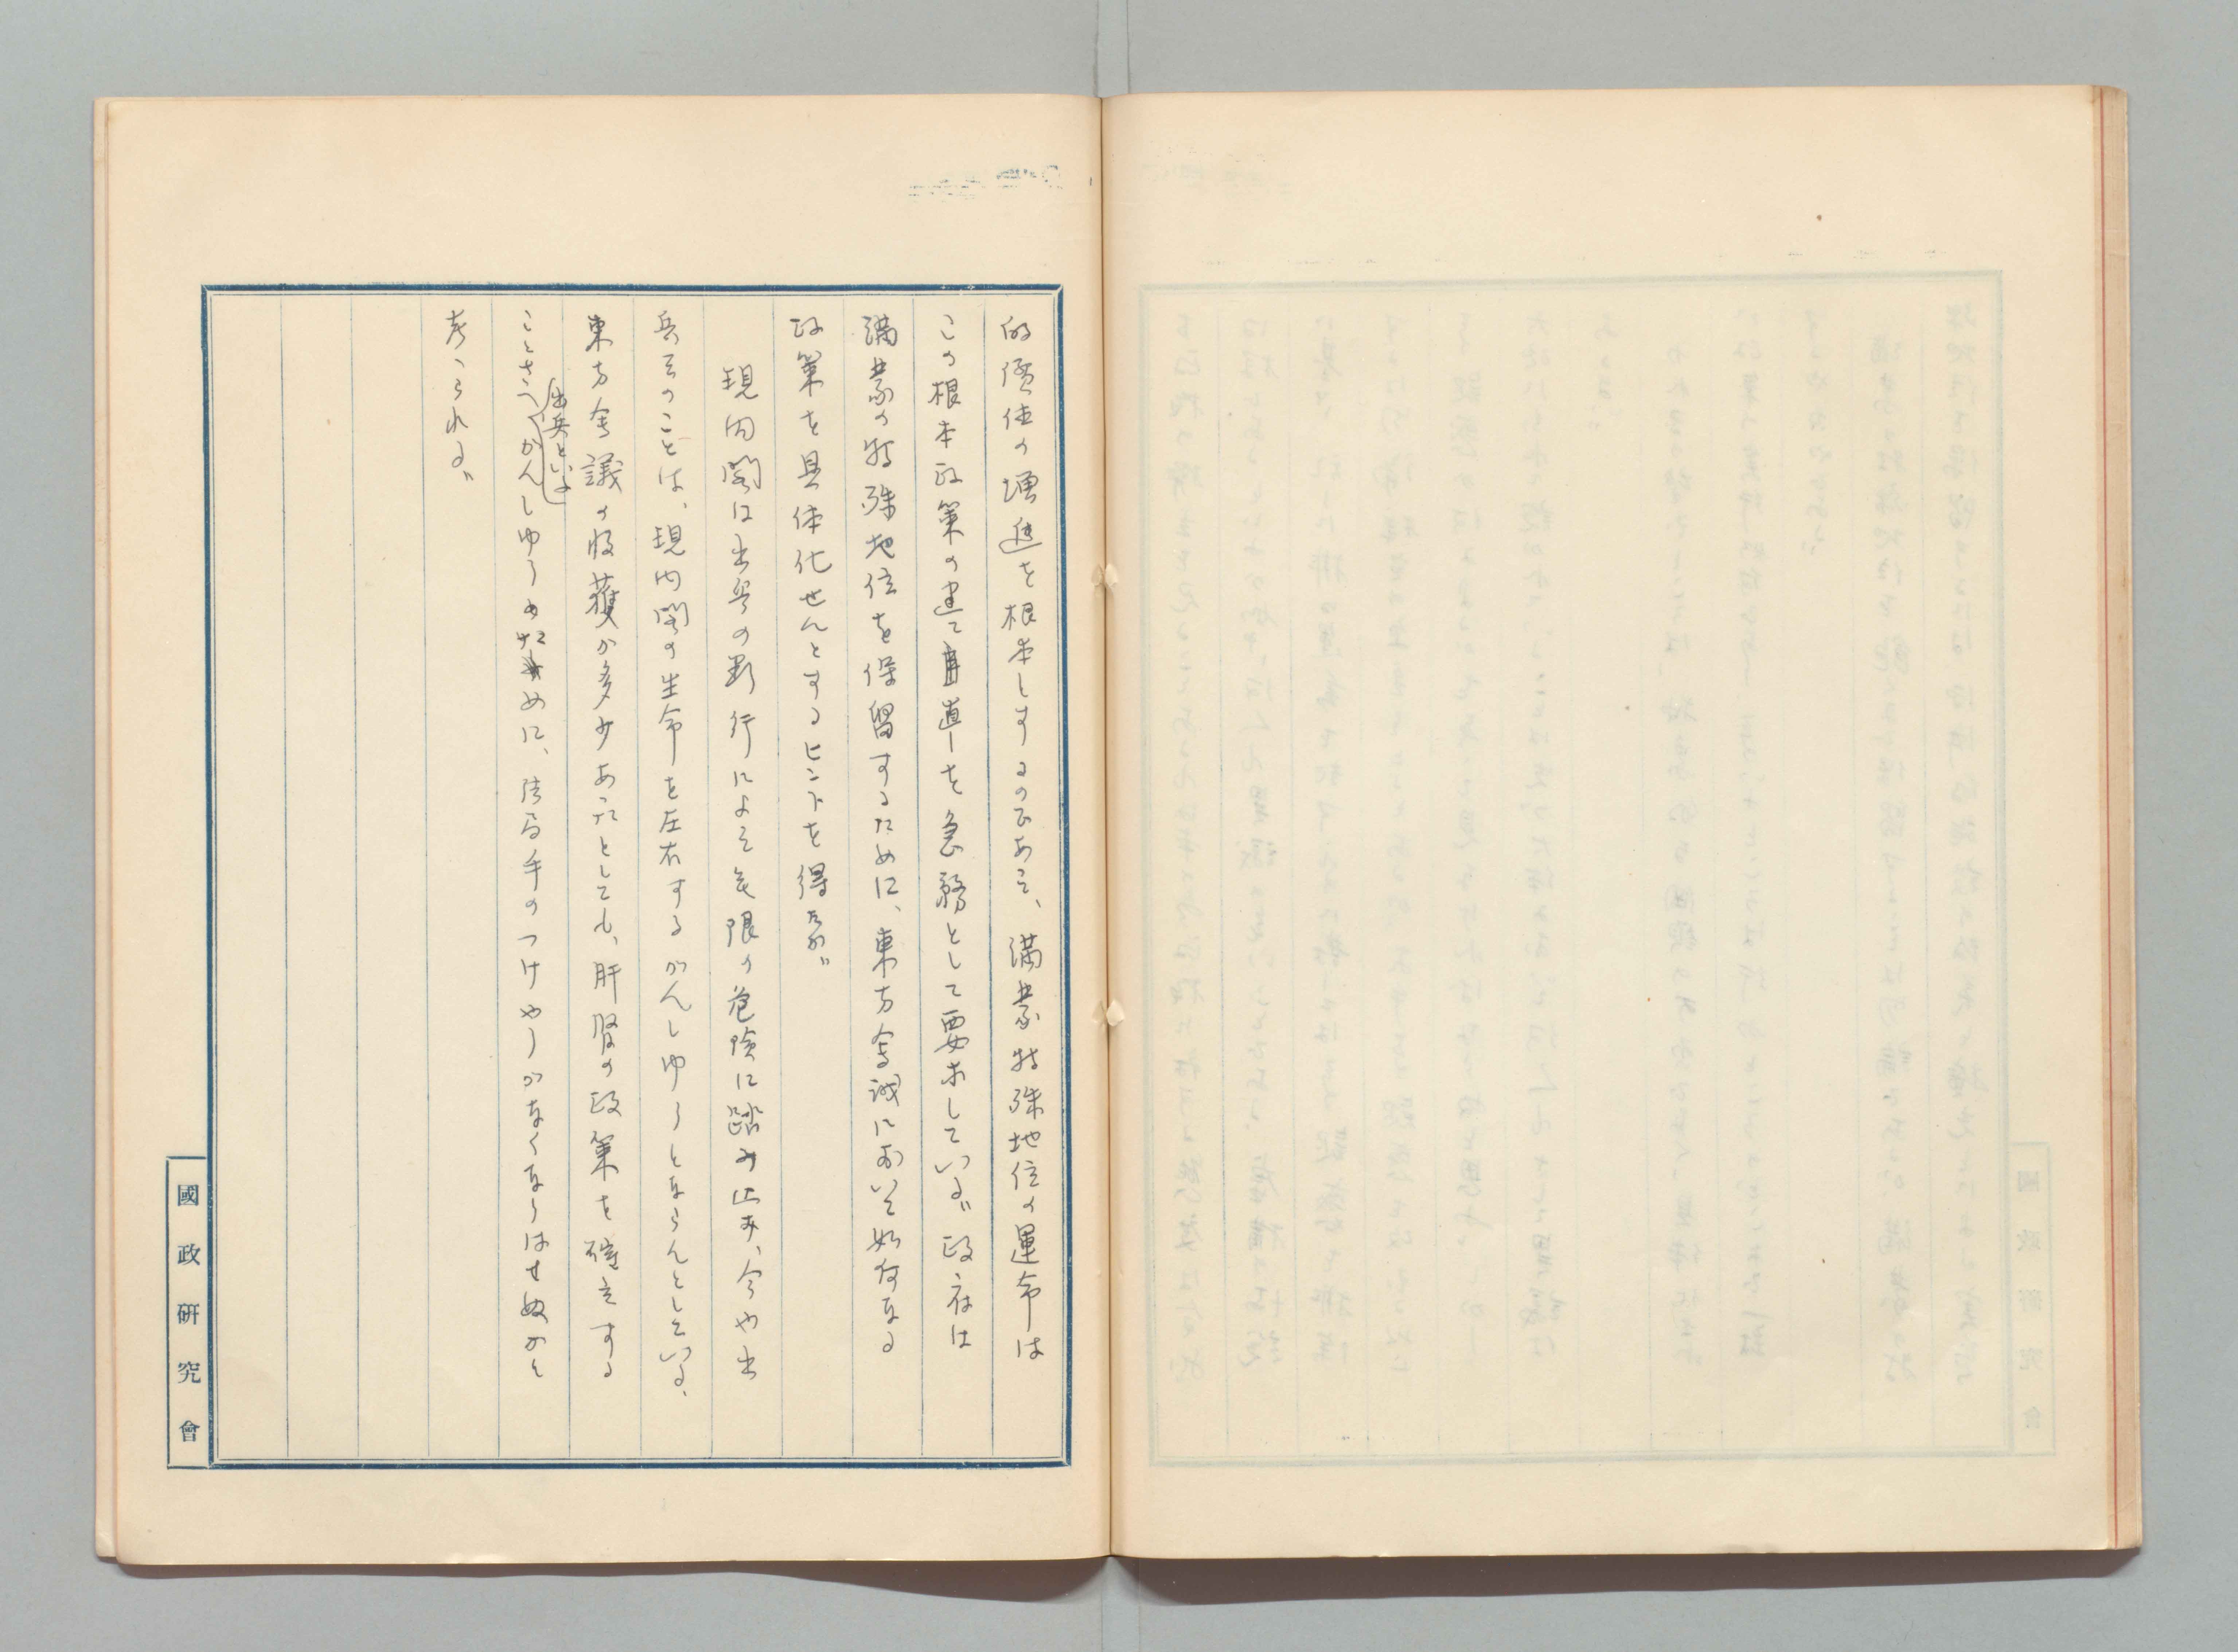 的價値の増進を根本しするのであつて、満蒙特殊地位の運命は
この根本政策の建て直しを急務として要求している。政府は
満蒙の特殊地位を保留するために、東方会議において如何なる
政策を具体化せんとするヒントを得たか。
現内閣は出兵の断行によつて無限の危険に踏み止み、今や出
兵そのことは、現内閣の生命を左右するがんしゆうとならんとしている、
東方会議の収獲が多少あつたとしても、肝腎の政策を確立する
ことさへ出兵といふがんしゆうのために、結局手のつけやうがなくなりはせぬかと
考へられる。
國政研究會